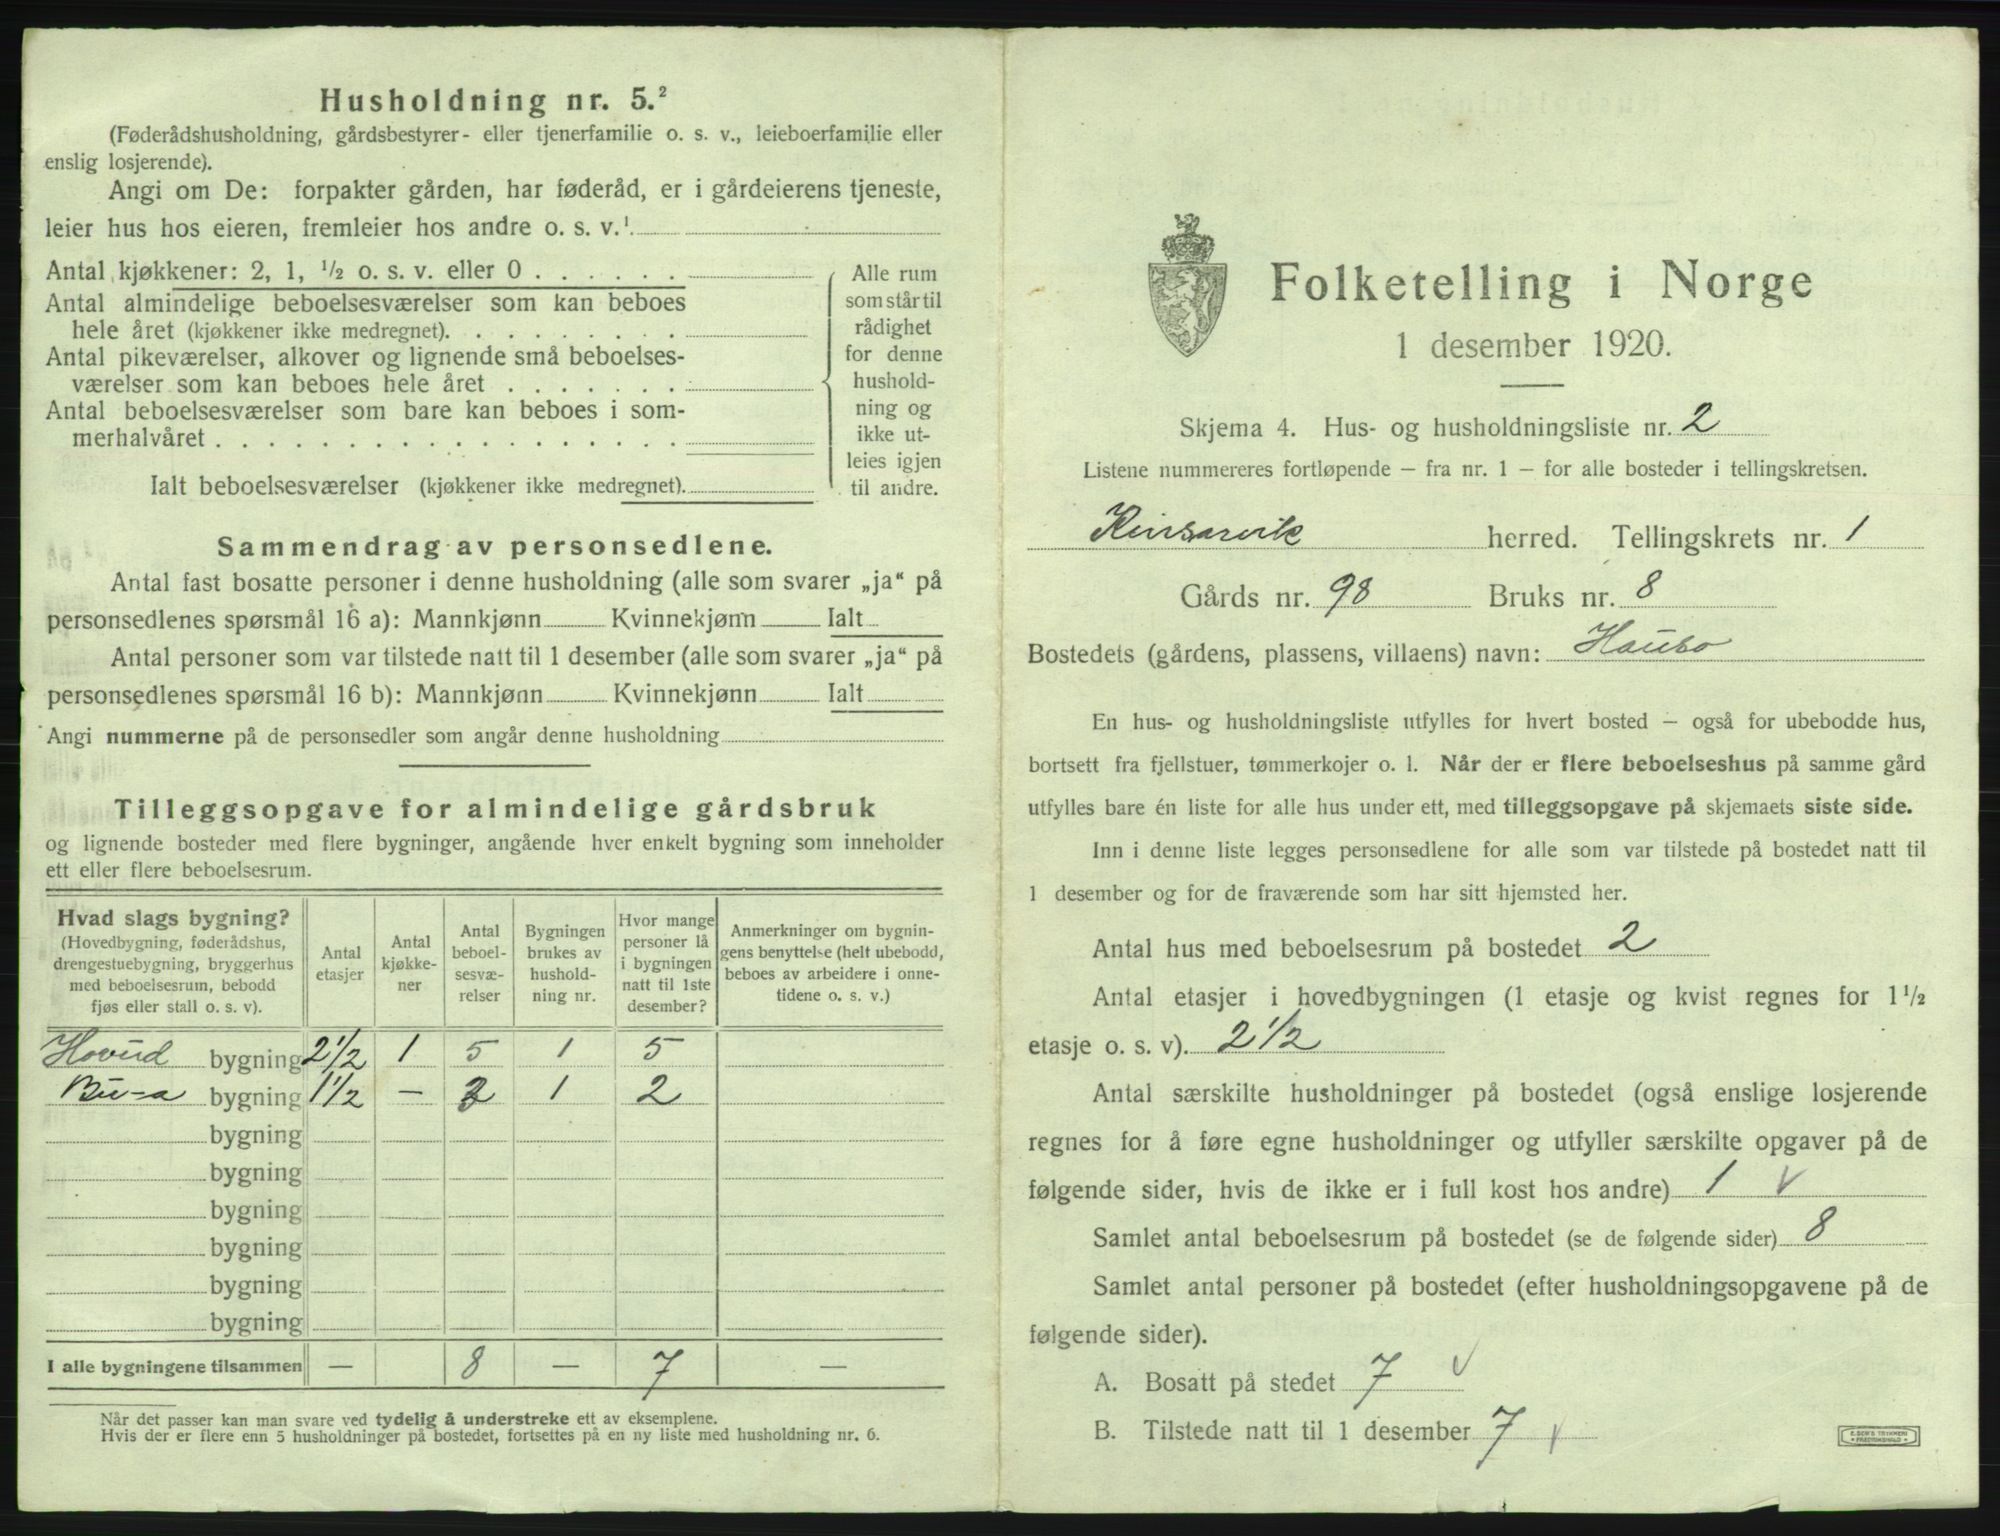 Husholdning nr. 5.²
(Føderådshusholdning, gårdsbestyrer- eller tjenerfamilie o. s. v., leieboerfamilie eller
enslig losjerende).
Angi om De: forpakter gården, har føderåd, er i gårdeierens tjeneste,
leier hus hos eieren, fremleier hos andre o. s. v.¹
Antal kjøkkener: 2, 1, ½ o. s. v. eller 0 . . . . . .
Antal almindelige beboelsesværelser som kan beboes
hele året (kjøkkener ikke medregnet). . . . . . . . .
Antal pikeværelser, alkover og lignende små beboelses-
værelser som kan beboes hele året . . . . . . .
Antal beboelsesværelser som bare kan beboes i som-
merhalvåret . . . . . . . . . . . . . . . . . .
Ialt beboelsesværelser (kjøkkener ikke medregnet).
Alle rum
som står til
rådighet
for denne
hushold-
ning og
ikke ut-
leies igjen
til andre.
Sammendrag av personsedlene.
Antal fast bosatte personer i denne husholdning (alle som svarer „ja“ på
personsedlenes spørsmål 16 a): Mannkjønn Kvinnekjønn Ialt
Antal personer som var tilstede natt til 1 desember (alle som svarer „ja“ på
personsedlenes spørsmål 16 b): Mannkjønn Kvinnekjønn Ialt
Angi nummerne på de personsedler som angår denne husholdning
Tilleggsopgave for almindelige gårdsbruk
og lignende bosteder med flere bygninger, angående hver enkelt bygning som inneholder
ett eller flere beboelsesrum.
Hvad slags bygning?
(Hovedbygning, føderådshus,
drengestuebygning, bryggerhus
med beboelsesrum, bebodd
fjøs eller stall o. s. v).
Antal
etasjer
Antal
kjøkke-
ner
Antal
beboel-
sesvæ-
relser
Bygningen
brukes av
hushold-
ning nr.
Hvor mange
personer lå
i bygningen
natt til 1ste
desember?
Anmerkninger om bygnin-
gens benyttelse (helt ubebodd,
beboes av arbeidere i onne-
tidene o. s. v.)
Hovud bygning 2½ 1 5 1 5
Bu-a bygning 1½ — 3 1 2
bygning
bygning
bygning
bygning
bygning
bygning
I alle bygningene tilsammen — 8 — 7 —
Når det passer kan man svare ved tydelig å understreke ett av eksemplene.
Hvis der er flere enn 5 husholdninger på bostedet, fortsettes på en ny liste med husholdning nr. 6.
Folketelling i Norge
1 desember 1920.
Skjema 4. Hus- og husholdningsliste nr. 2
Listene nummereres fortløpende — fra nr. 1 — for alle bosteder i tellingskretsen.
Kinsarvik herred. Tellingskrets nr. 1
Gårds nr. 98 Bruks nr. 8
Bostedets (gårdens, plassens, villaens) navn: Hauso
En hus- og husholdningsliste utfylles for hvert bosted — også for ubebodde hus,
bortsett fra fjellstuer, tømmerkojer o. l. Når der er flere beboelseshus på samme gård
utfylles bare én liste for alle hus under ett, med tilleggsopgave på skjemaets siste side.
Inn i denne liste legges personsedlene for alle som var tilstede på bostedet natt til
1 desember og for de fraværende som har sitt hjemsted her.
Antal hus med beboelsesrum på bostedet 2
Antal etasjer i hovedbygningen (1 etasje og kvist regnes for 1½
etasje o. s. v). 2½
Antal særskilte husholdninger på bostedet (også enslige losjerende
regnes for å føre egne husholdninger og utfyller særskilte opgaver på de
følgende sider, hvis de ikke er i full kost hos andre) 1 ✓
Samlet antal beboelsesrum på bostedet (se de følgende sider) 8
Samlet antal personer på bostedet (efter husholdningsopgavene på de
følgende sider).
A. Bosatt på stedet 7 ✓
B. Tilstede natt til 1 desember 7 ✓
E. SEM'S TRYKKERI
FREDRIKSHALD